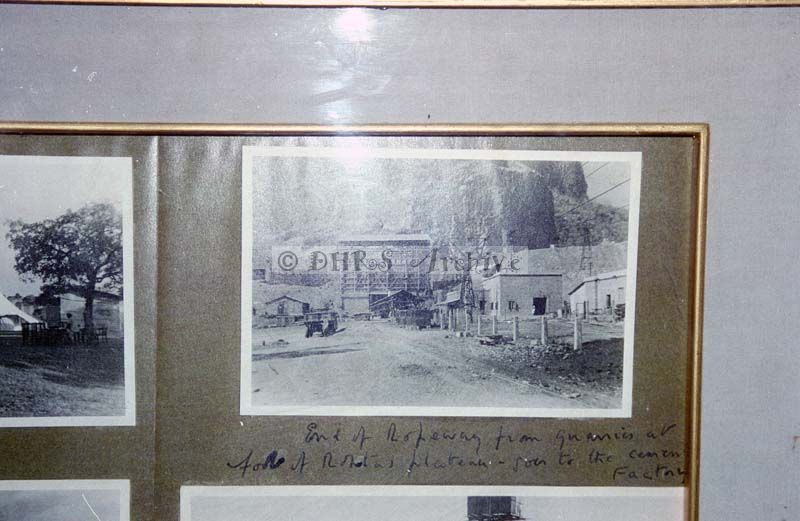 © DHRS Archive
End of Ropeway from quarries at
foot of Rohtas plateau - goes to the cement
Factory